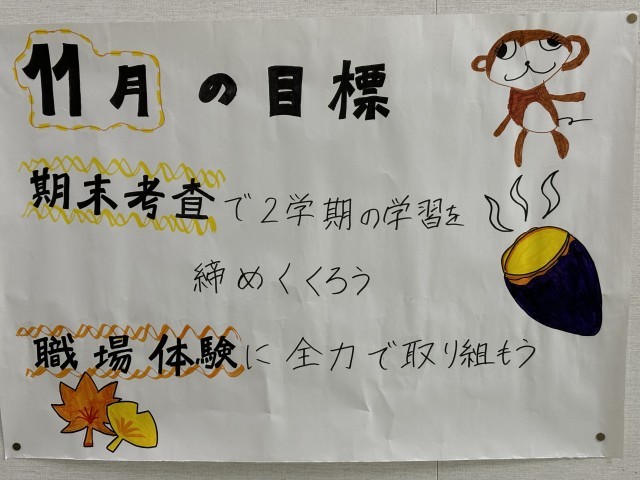 11月の目標
期末考査で2学期の学習を
締めくくろう
職場体験に全力で取り組もう